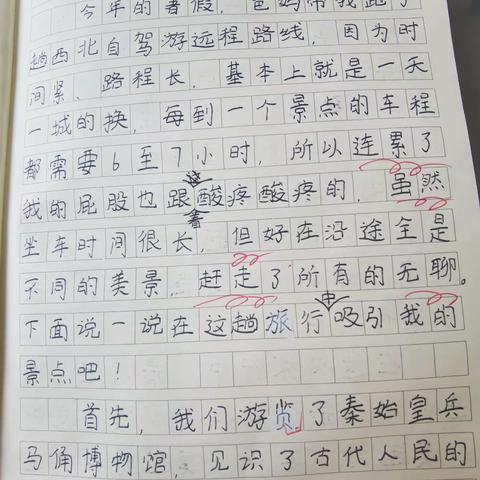 今年的暑假，爸妈带我跑了
趟西北自驾游远程路线，因为时
间紧、路程长，基本上就是一天
一城的换，每到一个景点的车程
都需要6至7小时，所以连累了
我的屁股也跟着酸疼酸疼的，虽然
坐车时间很长，但好在沿途全是
不同的美景，赶走了所有的无聊。
下面说一说在这趟旅行中吸引我的
景点吧！
首先，我们游览了秦始皇兵
马俑博物馆，见识了古代人民的